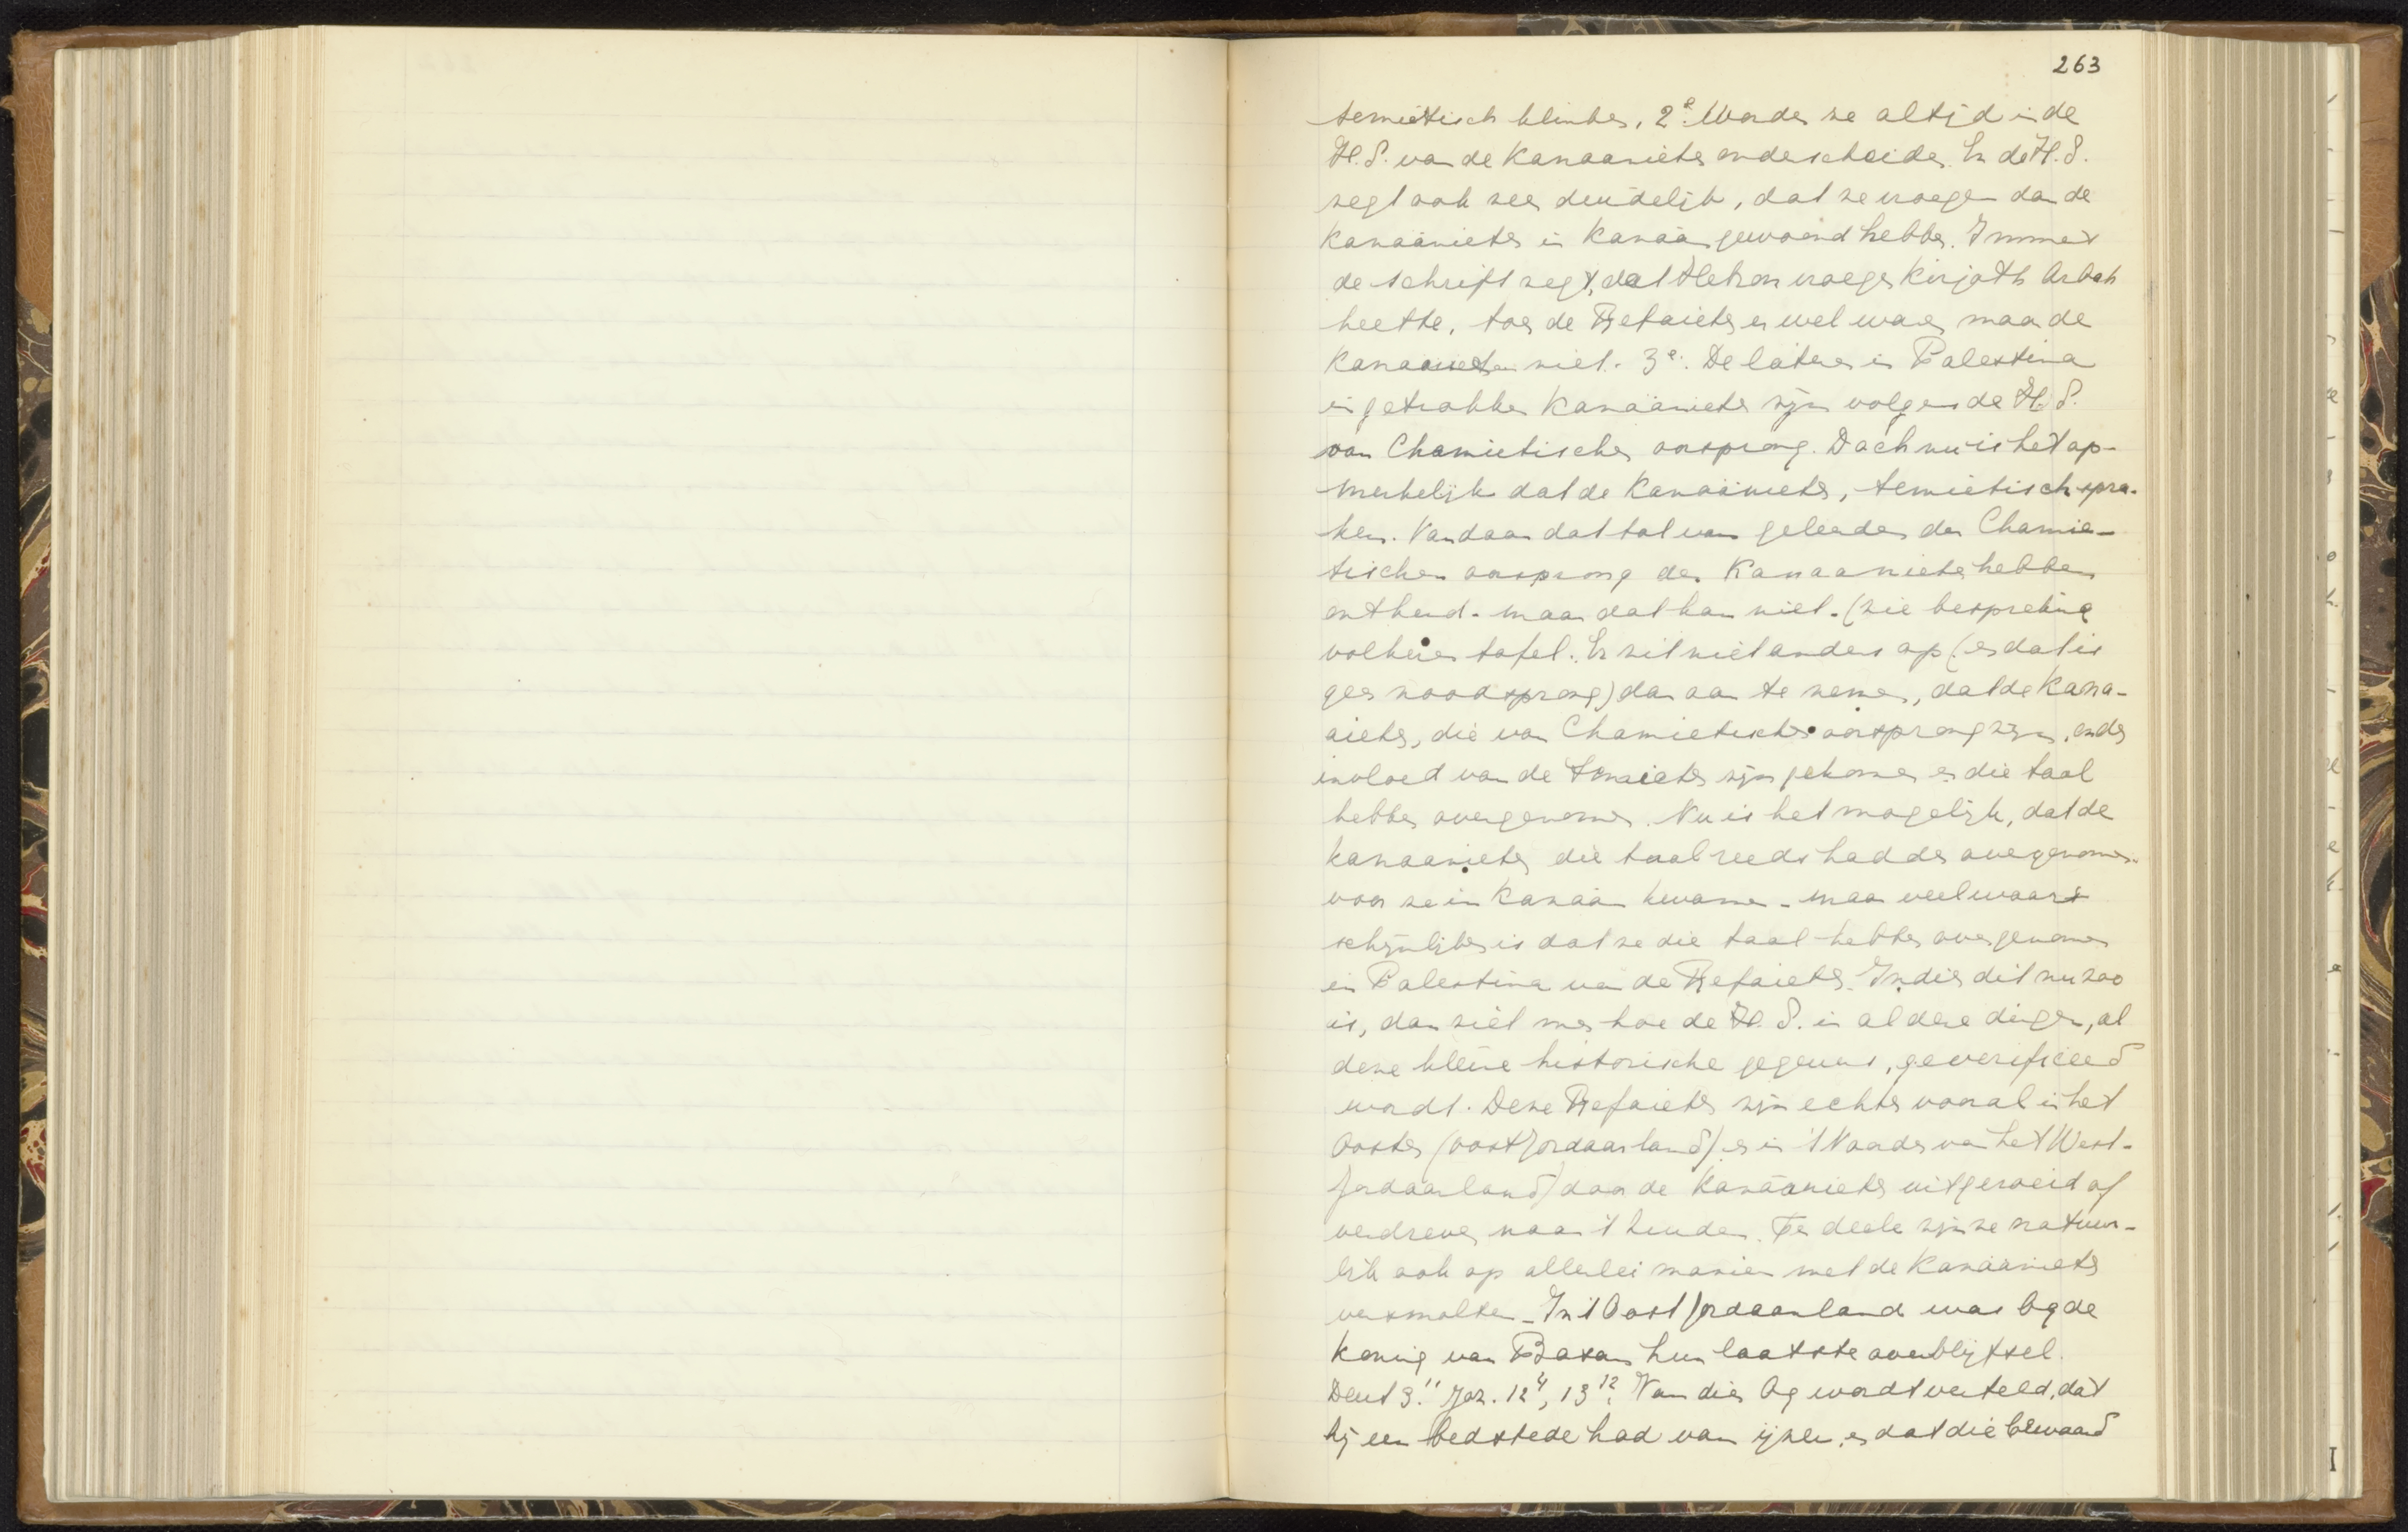 263
semietisch klinken, 2e. Worden ze altijd in de
H.S. van de Kanaanieten onderscheiden. En de H.S.
zegt ook zeer duidelijk, dat ze vroeger dan de
Kanaänieten in Kanaän gewoond hebben. Immers
de schrift zegt, dat Hebron vroeger Kirjath Arbah
heette, toen de Refaieten er wel waren maar de
Kanaanieten niet. 3e. De lateren in Palestina
ingetrokken Kanaänieten zijn volgens de H.S.
van Chamietischen oorsprong. Doch nu is het op-
merkelijk dat de Kanaänieten, semietisch spra-
ken. Vandaar dat tal van geleerden den Chamie-
tischen oorsprong der Kanaanieten hebben
ontkend. maar dat kan niet. (zie bespreking
volkeren tafel. Er zit niet anders op (en dat is
geen noodsprong) dan aan te nemen, dat de Kana-
aieten, die van Chamietischen oorsprong zijn, onder
invloed van de Semieten zijn gekomen en die taal
hebben overgenomen. Nu is het mogelijk, dat de
kanaanieten die taal reeds hadden overgenomen.
voor ze in Kanaän kwamen - maar veel waars
schijnlijker is dat ze die taal hebben overgenomen
in Palestina van de Refaieten. Indien dit nu zoo
is, dan ziet men hoe de H.S. in al deze dingen, al
deze kleine historische gegevens, geverificeerd
wordt. Deze Refaieten zijn echter vooral in het
Oosten (oostJordaanland) en in 't Noorden van het West-
Jordaanland) door de Kanäanieten uitgeroeid of
verdreven naar 't Zuiden. Ten deele zijn ze natuur-
lijk ook op allerlei manier met de Kanäanieten
versmolten - In 't Oost Jordaanland was Og de
koning van Basan hun laatste overblijfsel.
Deut 3.11 Joz. 12 4, 13 12. Van dien Og wordt verteld, dat
hij een bedstede had van ijzer, en dat die bewaard